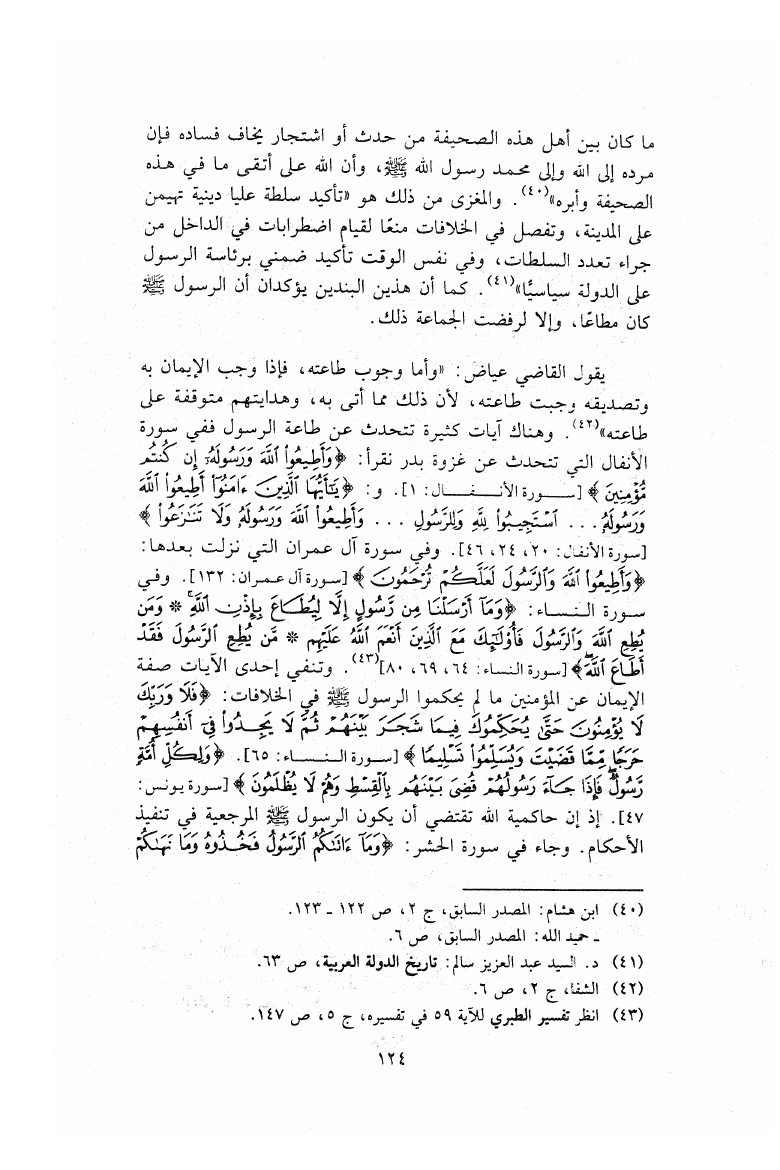 ما كان بين أهل هذه الصحيفة من حدث أو اشتجار يخاف فساده فإن
مرده إلى الله وإلى محمد رسول الله ﷺ، وأن الله على أتقى ما في هذه
الصحيفة وأبره»(٤٠). والمغزى من ذلك هو «تأكيد سلطة عليا دينية تهيمن
على المدينة، وتفصل في الخلافات منعًا لقيام اضطرابات في الداخل من
جراء تعدد السلطات، وفي نفس الوقت تأكيد ضمني برئاسة الرسول
على الدولة سياسيًّا»(٤١). كما أن هذين البندين يؤكدان أن الرسول ﷺ
كان مطاعًا، وإلا لرفضت الجماعة ذلك.
يقول القاضي عياض: «وأما وجوب طاعته، فإذا وجب الإيمان به
وتصديقه وجبت طاعته، لأن ذلك مما أتى به، وهدايتهم متوقفة على
طاعته»(٤٢). وهناك آيات كثيرة تتحدث عن طاعة الرسول ففي سورة
الأنفال التي تتحدث عن غزوة بدر نقرأ: ﴿وَأَطِيعُوا۟ ٱللَّهَ وَرَسُولَهُۥٓ إِن كُنتُم
مُّؤْمِنِينَ﴾ [سورة الأنفال: ١]. و: ﴿يَٰٓأَيُّهَا ٱلَّذِينَ ءَامَنُوٓا۟ أَطِيعُوا۟ ٱللَّهَ
وَرَسُولَهُۥ... ٱسْتَجِيبُوا۟ لِلَّهِ وَلِلرَّسُولِ ... وَأَطِيعُوا۟ ٱللَّهَ وَرَسُولَهُۥ وَلَا تَنَٰزَعُوا۟﴾
[سورة الأنفال: ٢٠، ٢٤، ٤٦]. وفي سورة آل عمران التي نزلت بعدها:
﴿وَأَطِيعُوا۟ ٱللَّهَ وَٱلرَّسُولَ لَعَلَّكُمْ تُرْحَمُونَ﴾ [سورة آل عمران: ١٣٢]. وفي
سورة النساء: ﴿وَمَآ أَرْسَلْنَا مِن رَّسُولٍ إِلَّا لِيُطَاعَ بِإِذْنِ ٱللَّهِ ۚ * وَمَن
يُطِعِ ٱللَّهَ وَٱلرَّسُولَ فَأُو۟لَٰٓئِكَ مَعَ ٱلَّذِينَ أَنْعَمَ ٱللَّهُ عَلَيْهِم * مَّن يُطِعِ ٱلرَّسُولَ فَقَدْ
أَطَاعَ ٱللَّهَ ۖ﴾ [سورة النساء: ٦٤، ٦٩، ٨٠](٤٣). وتنفي إحدى الآيات صفة
الإيمان عن المؤمنين ما لم يحكموا الرسول ﷺ في الخلافات: ﴿فَلَا وَرَبِّكَ
لَا يُؤْمِنُونَ حَتَّىٰ يُحَكِّمُوكَ فِيمَا شَجَرَ بَيْنَهُمْ ثُمَّ لَا يَجِدُوا۟ فِىٓ أَنفُسِهِمْ
حَرَجًا مِّمَّا قَضَيْتَ وَيُسَلِّمُوا۟ تَسْلِيمًا﴾ [سورة النساء: ٦٥]. ﴿وَلِكُلِّ أُمَّةٍ
رَّسُولٌ ۖ فَإِذَا جَآءَ رَسُولُهُمْ قُضِىَ بَيْنَهُم بِٱلْقِسْطِ وَهُمْ لَا يُظْلَمُونَ﴾ [سورة يونس:
٤٧]. إذ إن حاكمية الله تقتضي أن يكون الرسول ﷺ المرجعية في تنفيذ
الأحكام. وجاء في سورة الحشر: ﴿وَمَآ ءَاتَىٰكُمُ ٱلرَّسُولُ فَخُذُوهُ وَمَا نَهَىٰكُمْ
(٤٠) ابن هشام: المصدر السابق، ج ٢، ص ١٢٢ ـ ١٢٣.
ـ حميد الله: المصدر السابق، ص ٦.
(٤١) د. السيد عبد العزيز سالم: تاريخ الدولة العربية، ص ٦٣.
(٤٢) الشفا، ج ٢، ص ٦.
(٤٣) انظر تفسير الطبري للآية ٥٩ في تفسيره، ج ٥، ص ١٤٧.
١٢٤